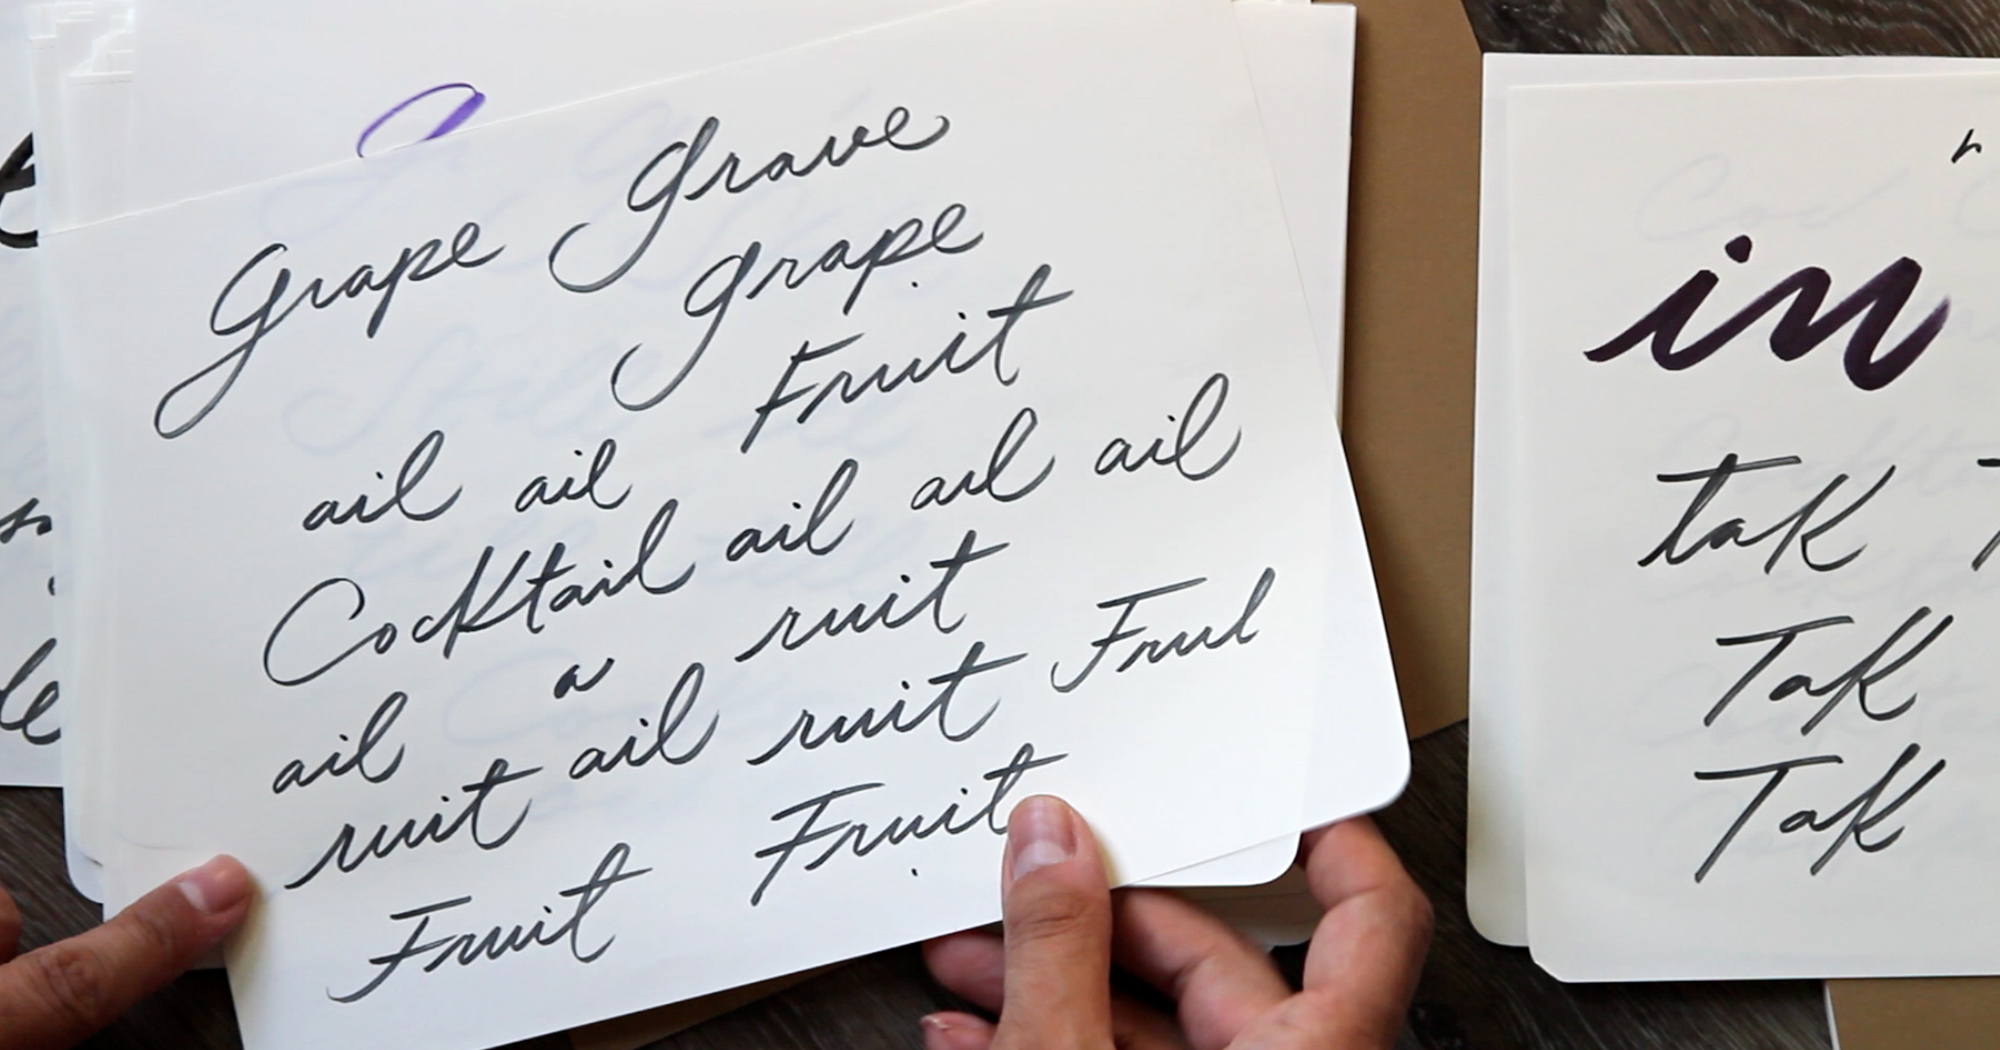 Grave
Grape
Grape
Fruit
ail ail
ail ail ail
Cocktail
a ruit
ail
ail ruit Frul
ruit
Fruit
Fruit
in
tak
Tak
Tak